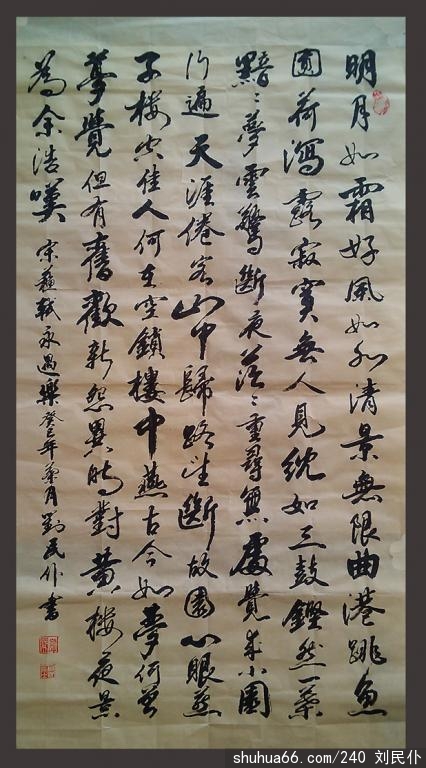 明月如霜好風如水清景無限曲港跳魚
圓荷瀉露寂寞無人見紞如三鼓鏗然一葉
黯〻夢雲驚斷夜茫〻重尋無處覺來小園
行遍天涯倦客山中歸路望斷故園心眼燕
子樓空佳人何在空鎖樓中燕古今如夢何曾
夢覺但有舊歡新怨異時對黃樓夜景
為余浩嘆
宋蘇軾永遇樂癸巳年菊月劉民仆書
shuhua66.com/240 刘民仆